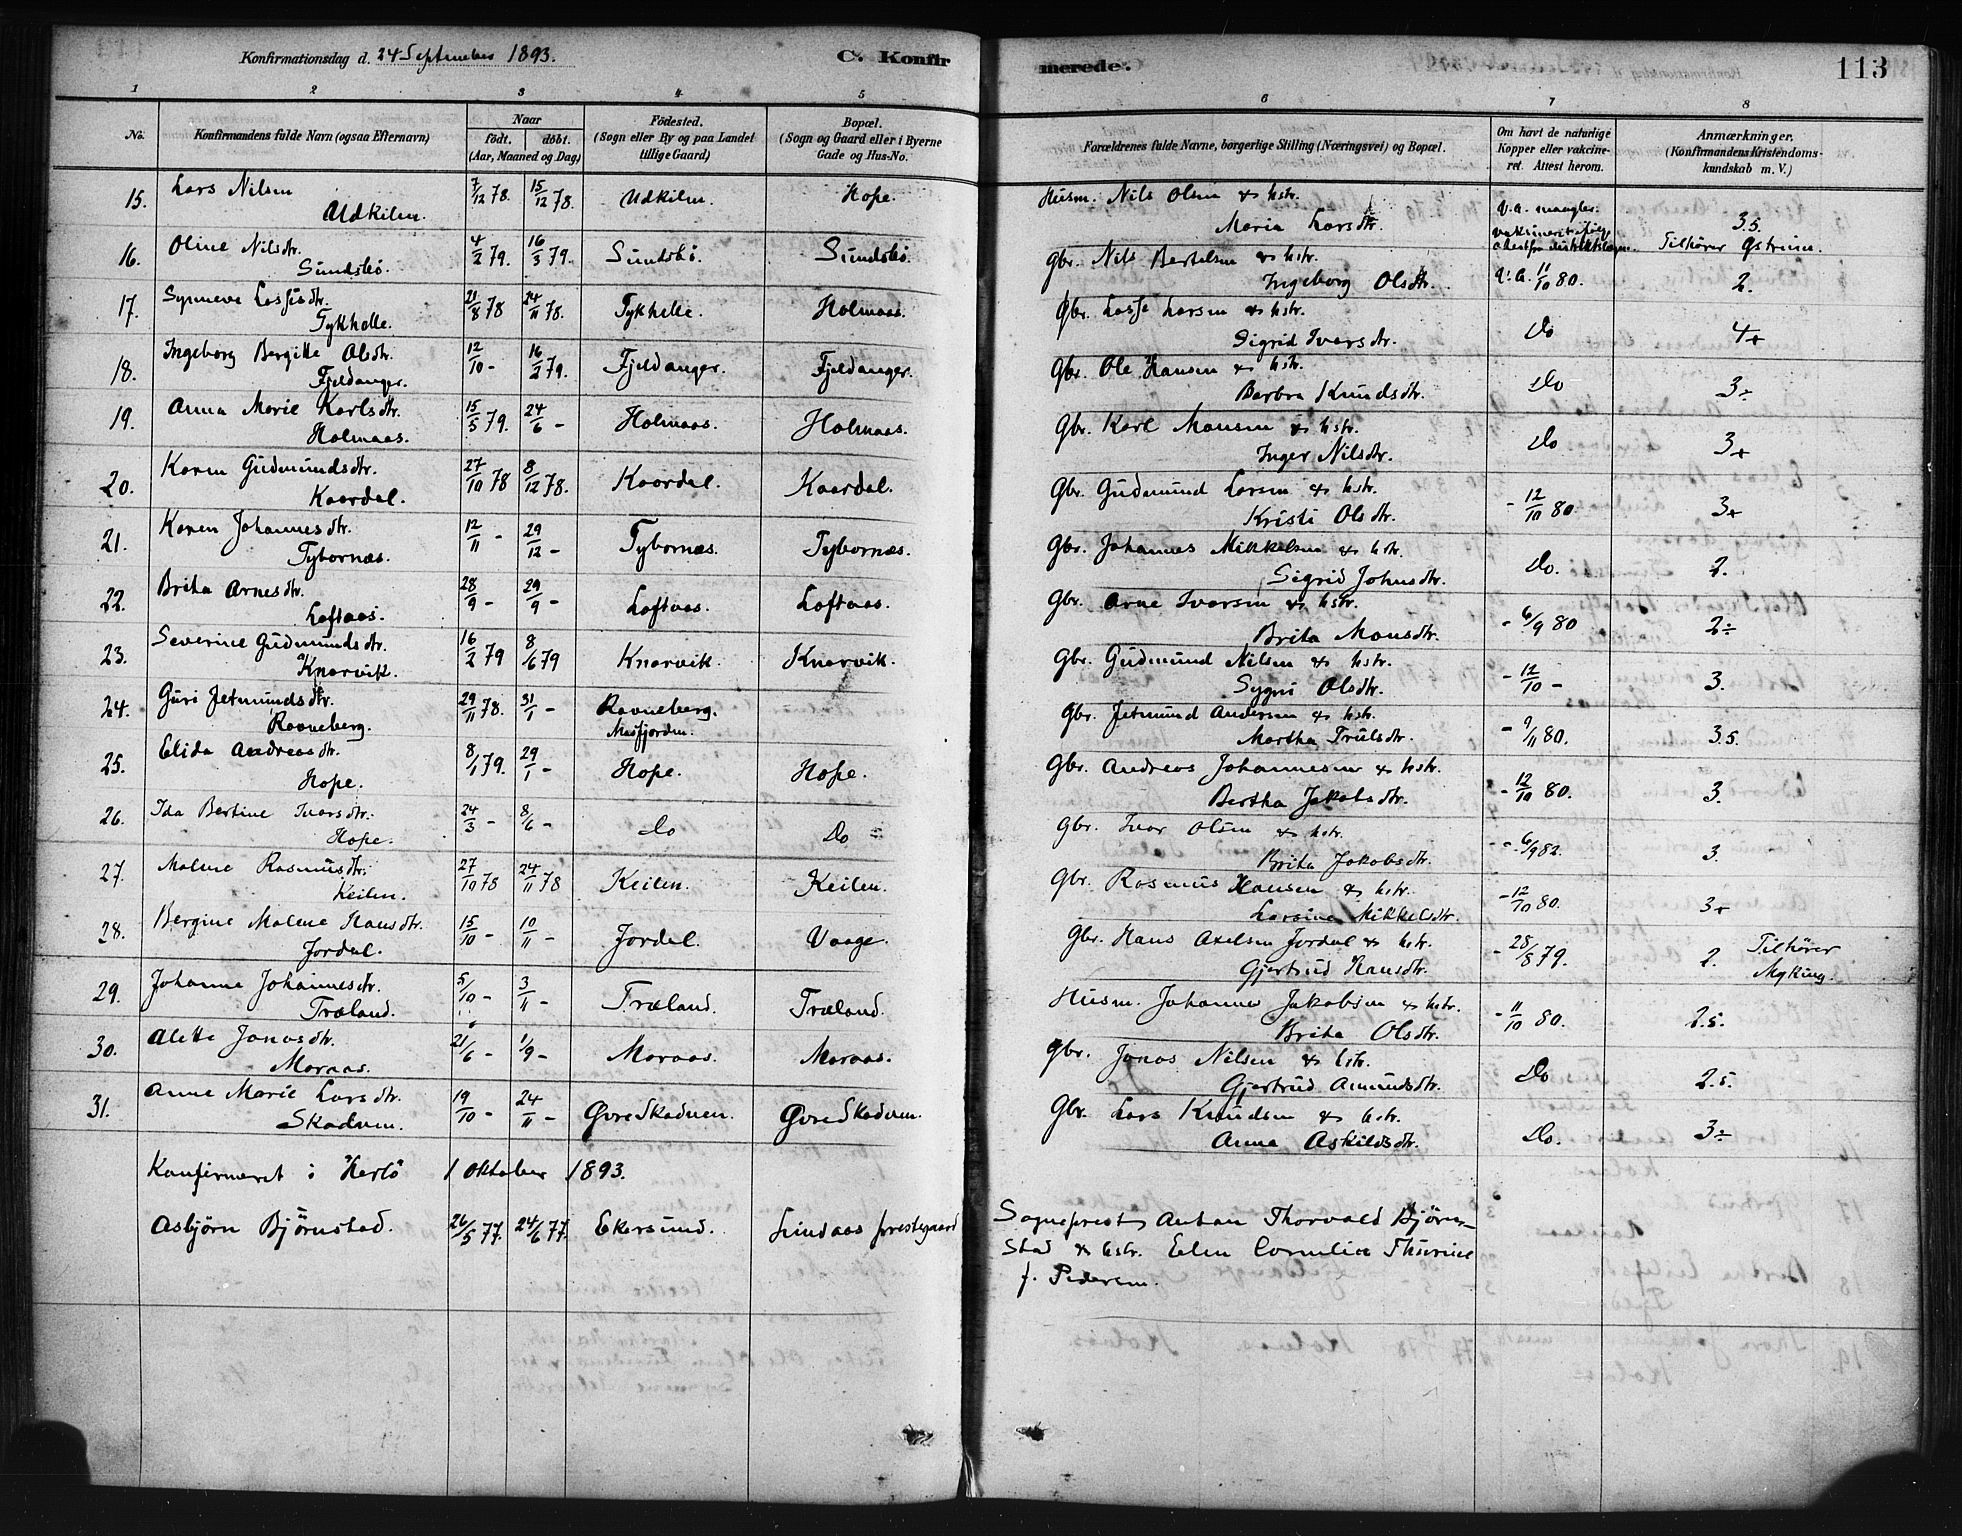 Konfirmationsdag d. 24 September 1893. C. Konfirmerede. 113
1 2 3 4 5 6 7 8
No. Konfirmandens fulde Navn (ogsaa Efternavn) Naar födt. döbt. (Aar, Maaned og Dag) Födested. (Sogn eller By og paa Landet tillige Gaard) Bopæl. (Sogn og Gaard eller i Byerne Gade og Hus-No. Forældrenes fulde Navne, borgerlige Stilling (Næringsvei) og Bopæl. Om havt de naturlige Kopper eller vakcineret. Attest herom. Anmærkninger. (Konfirmandens Kristendomskundskab m. V.)
15. Lars Nilsen Udkilen. 7/12 78. 15/12 78. Udkilen. Hope. Husm. Nils Olsen & hstr. Maria Larsdtr. v.a. mangler. 3.5. Tilhører Ostreim.
16. Oline Nilsdtr. Sundsbö. 4/2 79. 16/3 79. Sundsbö. Sundsbö. Gbr. Nils Bertelsen & hstr. Ingeborg Olsdtr. v.a. 11/10 80. 2.
17. Synneve Lassesdtr. Tykhelle. 21/8 78 24/11 78. Tykhelle. Holmaas. Gbr. Lasse Larsen & hstr. Sigrid Ivarsdtr. Do 4+
18. Ingeborg Bergitte Olsdtr. Fjeldanger. 12/10 - 16/2 79. Fjeldanger. Fjeldanger. Gbr. Ole Hansen & hstr. Barbra Knudsdtr. Do 3÷
19. Anna Marie Karlsdtr. Holmaas. 15/5 79. 24/6 - Holmaas. Holmaas. Gbr. Karl Monsen & hstr. Inger Nilsdtr. Do 3+
20. Karen Gudmundsdtr. Kaardal. 27/10 78 8/12 78. Kaardal. Kaardal. Gbr. Gudmund Larsen & hstr. Kristi Olsdtr. - 12/10 80. 3+
21. Karen Johannesdtr. Tybornæs. 12/11 - 29/12 - Tybornæs. Tybornæs. Gbr. Johannes Mikkelsen & hstr. Sigrid Johnsdtr. Do. 2.
22. Brita Arnesdtr. Loftaas. 28/9 - 29/9 - Loftaas. Loftaas. Gbr. Arne Ivarsen & hstr. Brita Monsdtr. - 6/9 80 2÷
23. Severine Gudmundsdtr. Knarvik. 16/2 79 8/6 79 Knarvik. Knarvik. Gbr. Gudmund Nilsen & hstr. Sygni Olsdtr. - 12/10 - 3.
24. Guri Jetmundsdtr. Ravneberg. 29/11 78. 31/1 - Ravneberg. Masfjorden. Gbr. Jetmund Andersen & hstr. Martha Trulsdtr. - 9/11 80. 3.5.
25. Elida Andreasdtr. Hope. 8/1 79. 29/1 - Hope. Hope. Gbr. Andreas Johannesen & hstr. Bertha Jakobsdtr. - 12/10 80. 3.
26. Ida Bertine Ivarsdtr. Hope. 24/3 - 8/6 - Do Do Gbr. Ivar Olsen & hstr. Brita Jakobsdtr. - 6/9 82. 3.
27. Malene Rasmusdtr. Keilen. 27/10 78 24/11 78 Keilen. Keilen. Gbr. Rasmus Hansen & hstr. Larsina Mikkelsdtr. - 12/10 80. 3+
28. Bergine Malene Hansdtr. Jordal. 15/10 - 10/11 - Jordal. Vaage. Gbr. Hans Axelsen Jordal & hstr. Gjertrud Hansdtr. - 28/8 79. 2. Tilhører Myking.
29. Johanna Johannesdtr. Træland. 5/10 - 3/11 - Træland. Træland. Husm. Johannes Jakobsen & hstr. Brita Olsdtr. - 11/10 80. 2.5.
30. Alette Jonasdtr. Maraas. 21/6 - 1/9 - Maraas. Maraas. Gbr. Jonas Nilsen & hstr. Gjertrud Amundsdtr. Do 2.5.
31. Anne Marie Larsdtr. Skadven. 19/10 - 24/11 - Øvre Skadven. Øvre Skadven. Gbr. Lars Knudsen & hstr. Anna Askildsdtr. Do. 3÷
Konfirmeret i Herlö 1 Oktober 1893.
Asbjörn Björnstad. 26/5 77. 24/6 77. Ekersund. Lindaas prestegaard Sogneprest Anton Thorvald Björn-
stad & hstr. Elen Cornelia Thurine
f. Pedersen.